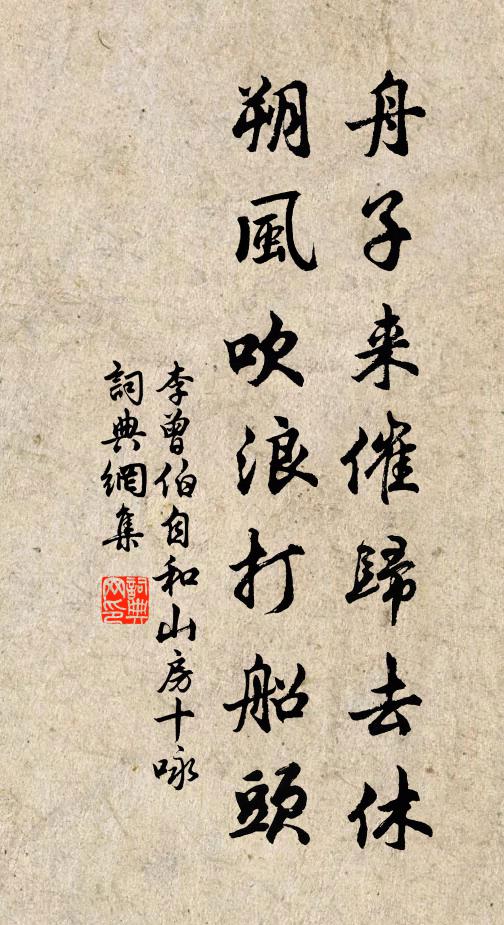 舟子来催歸去休
朔風吹浪打船頭
李曾伯自和山房十咏
詞典網集
詞典
網印